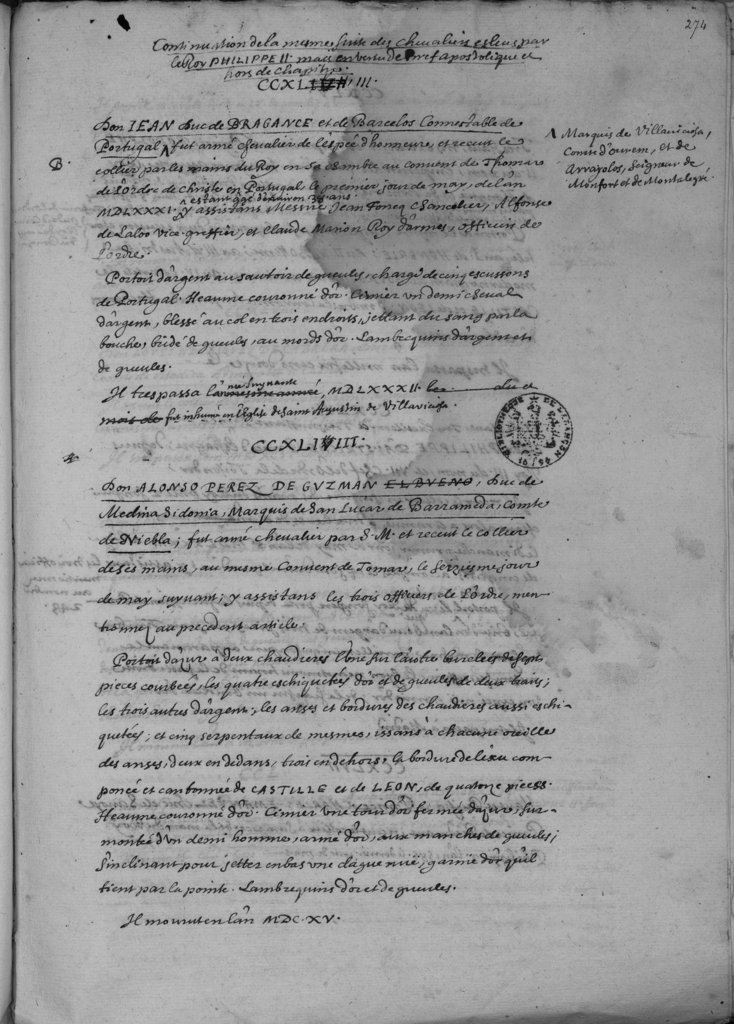 274
Continuation de la mesme suite des chevaliers esleus par
le Roy PHILIPPE II. mais en vertu de Bref apostolique et
hors de Chapitre.
CCXLVIII.
Don IEAN Duc de BRAGANCE et de Barcelos Connestable de
Portugal, fut armé chevalier de l'espée d'honneur, et receut le
collier par les mains du Roy en sa chambre au Convent de Thomar
B.
de l'ordre de Christe en Portugal le premier jour de may, de l'an
estant agé d'environ ans
MDLXXXI. y assistans Messire Jean Foncq Chancelier, Alfonse
de Laloo vice-greffier, et Claude Marion Roy d'armes, officiers de
l'ordre.
Marquis de Villaviciosa,
Comte d'ourem, et de
Arrayolos, Seigneur de
Monfort et de Montalegre.
Portoit d'argent au sautoir de gueules, chargé de cinq escussons
de Portugal. Heaume couronné d'or. Cimier un demi cheval
d'argent, blessé au col en trois endroits, jettant du sang par la
bouche, bridé de gueules, au mords d'or. Lambrequins d'argent et
de gueules.
Il trespassa l'année suyvante, MDLXXXII. le du
mois de fut inhumé en l'Eglise de Saint Augustin de Villaviciosa.
BIBLIOTHEQUE DE BESANÇON
CCXLVIII.
Don ALONSO PEREZ DE GVZMAN EL BVENO, Duc de
Medina Sidonia, Marquis de San Lucar de Barrameda, Comte
de Niebla; fut armé chevalier par S. M. et receut le collier
de ses mains, au mesme Convent de Tomar, le seiziesme jour
de may suyvant; y assistans les trois officiers de l'ordre, men-
tionnez au precedent article.
Portoit d'azur à deux chaudieres l'une sur l'autre burelées de sept
pieces courbées, les quatre eschiquetées d'or et de gueules de deux traits;
les trois autres d'argent; les anses et bordures des chaudieres aussi eschi-
quetées; et cinq serpentaux de mesmes, issans à chacune oreille
des anses, deux en dedans, trois en dehors. la bordure de l'escu com-
poncée et cantonnée de CASTILLE et de LEON, de quatorze pieces.
Heaume couronné d'or. Cimier une tour d'or fermée d'azur, sur-
montée d'un demi homme, armé d'or, aux manches de gueules,
s'inclinant pour jetter en bas une dague nuë, garnie d'or qu'il
tient par la pointe. Lambrequins d'or et de gueules.
Il mourut en l'an MDC.XV.